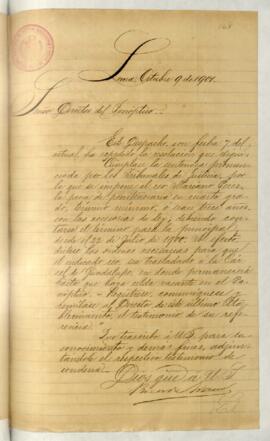 Lima, Octubre 9 de 1901.
Señor Director del Panóptico.
Este Despacho, con fecha 7 del
actual, ha expedido la resolución que sigue:
"Cúmplase la sentencia pronun-
ciada por los Tribunales de Justicia, por
la que se impone al reo Mariano
la pena de penitenciaría en cuarto gra-
do, término mínimo, ó sean trece años
con las accesorias de ley; debiendo con-
tarse el término para la principal
desde el 22 de julio de 1900. Al efecto
dense las órdenes necesarias para que
el indicado reo, sea trasladado a la Cár-
cel de Guadalupe, en donde permanecerá
hasta que haya celda vacante en el Pa-
nóptico. Regístrese, comuníquese y
remítase al Director de este último Esta-
blecimiento el testimonio de su refe-
rencia."
Que trascribo á US. para su
conocimiento y demás fines, adjun-
tándole el respectivo testimonio de
condena.
Dios gue. á US.